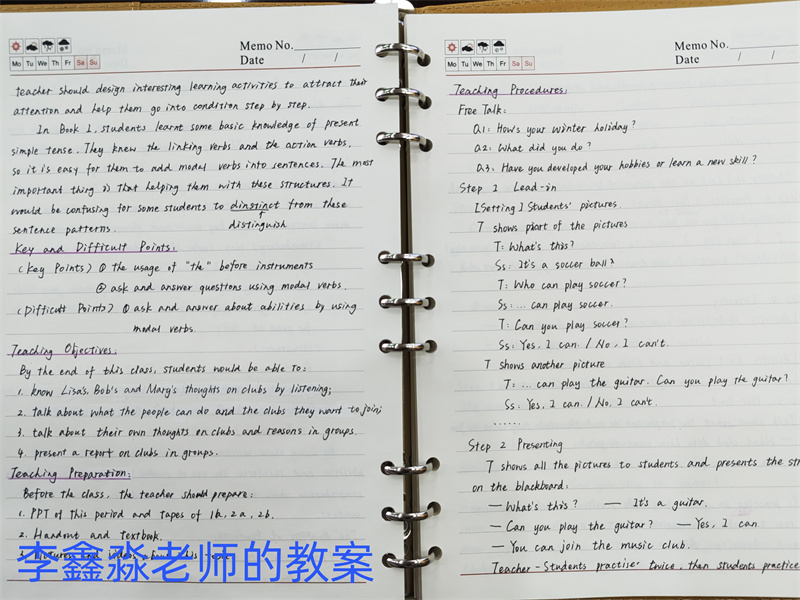 Memo No.
Mo Tu We Th Fr Sa Su
Date / /
teacher should design interesting learning activities to attract their
attention and help them go into condition step by step.
In Book 1, students learnt some basic knowledge of present
simple tense. They knew the linking verbs and the action verbs,
so it is easy for them to add modal verbs into sentences. The most
important thing is that helping them with these structures. It
would be confusing for some students to dinstinct from these
sentence patterns. distinguish
Key and Difficult Points:
(Key Points) ① the usage of "the" before instruments
② ask and answer questions using modal verbs.
(Difficult Points) ① ask and answer about abilities by using
modal verbs.
Teaching Objectives:
By the end of this class, students would be able to:
1. know Lisa's, Bob's and Mary's thoughts on clubs by listening;
2. talk about what the people can do and the clubs they want to join;
3. talk about their own thoughts on clubs and reasons in groups.
4. present a report on clubs in groups.
Teaching Preparation:
Before the class, the teacher should prepare:
1. PPT of this period and tapes of 1b, 2a, 2b.
2. Handout and textbook.
李鑫淼老师的教案
Memo No.
Mo Tu We Th Fr Sa Su
Date / /
Teaching Procedures:
Free Talk:
Q1: How's your winter holiday?
Q2: What did you do?
Q3: Have you developed your hobbies or learn a new skill?
Step 1 Lead-in
[Setting] Students' pictures.
T shows part of the pictures
T: What's this?
Ss: It's a soccer ball.
T: Who can play soccer?
Ss: ... can play soccer.
T: Can you play soccer?
Ss: Yes, I can. / No, I can't.
T shows another picture
T: ... can play the guitar. Can you play the guitar?
Ss: Yes, I can. / No, I can't.
......
Step 2 Presenting
T shows all the pictures to students and presents the
on the blackboard:
— What's this? — It's a guitar.
— Can you play the guitar? — Yes, I can
— You can join the music club.
Teacher - Students practise twice, then students practice